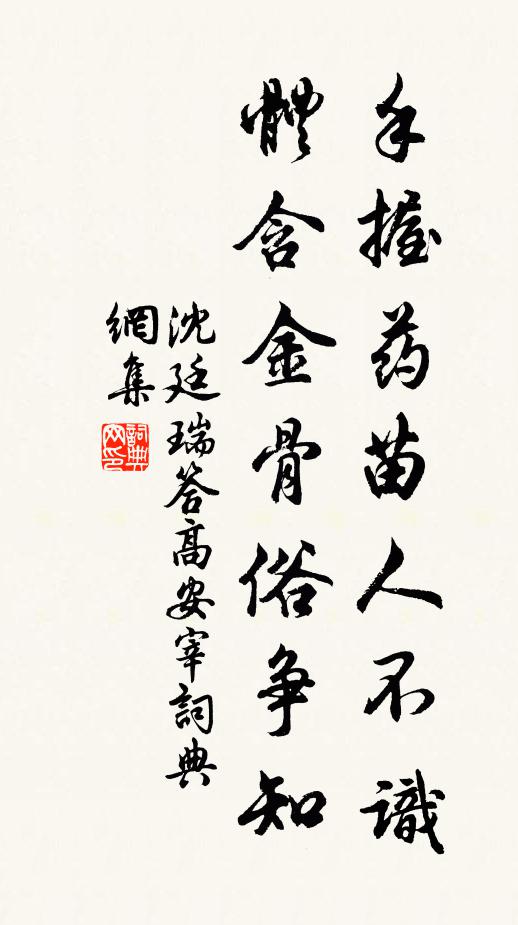 手握药苗人不識
體含金骨俗争知
沈廷瑞答高安宰詞典
網集
詞典
网印